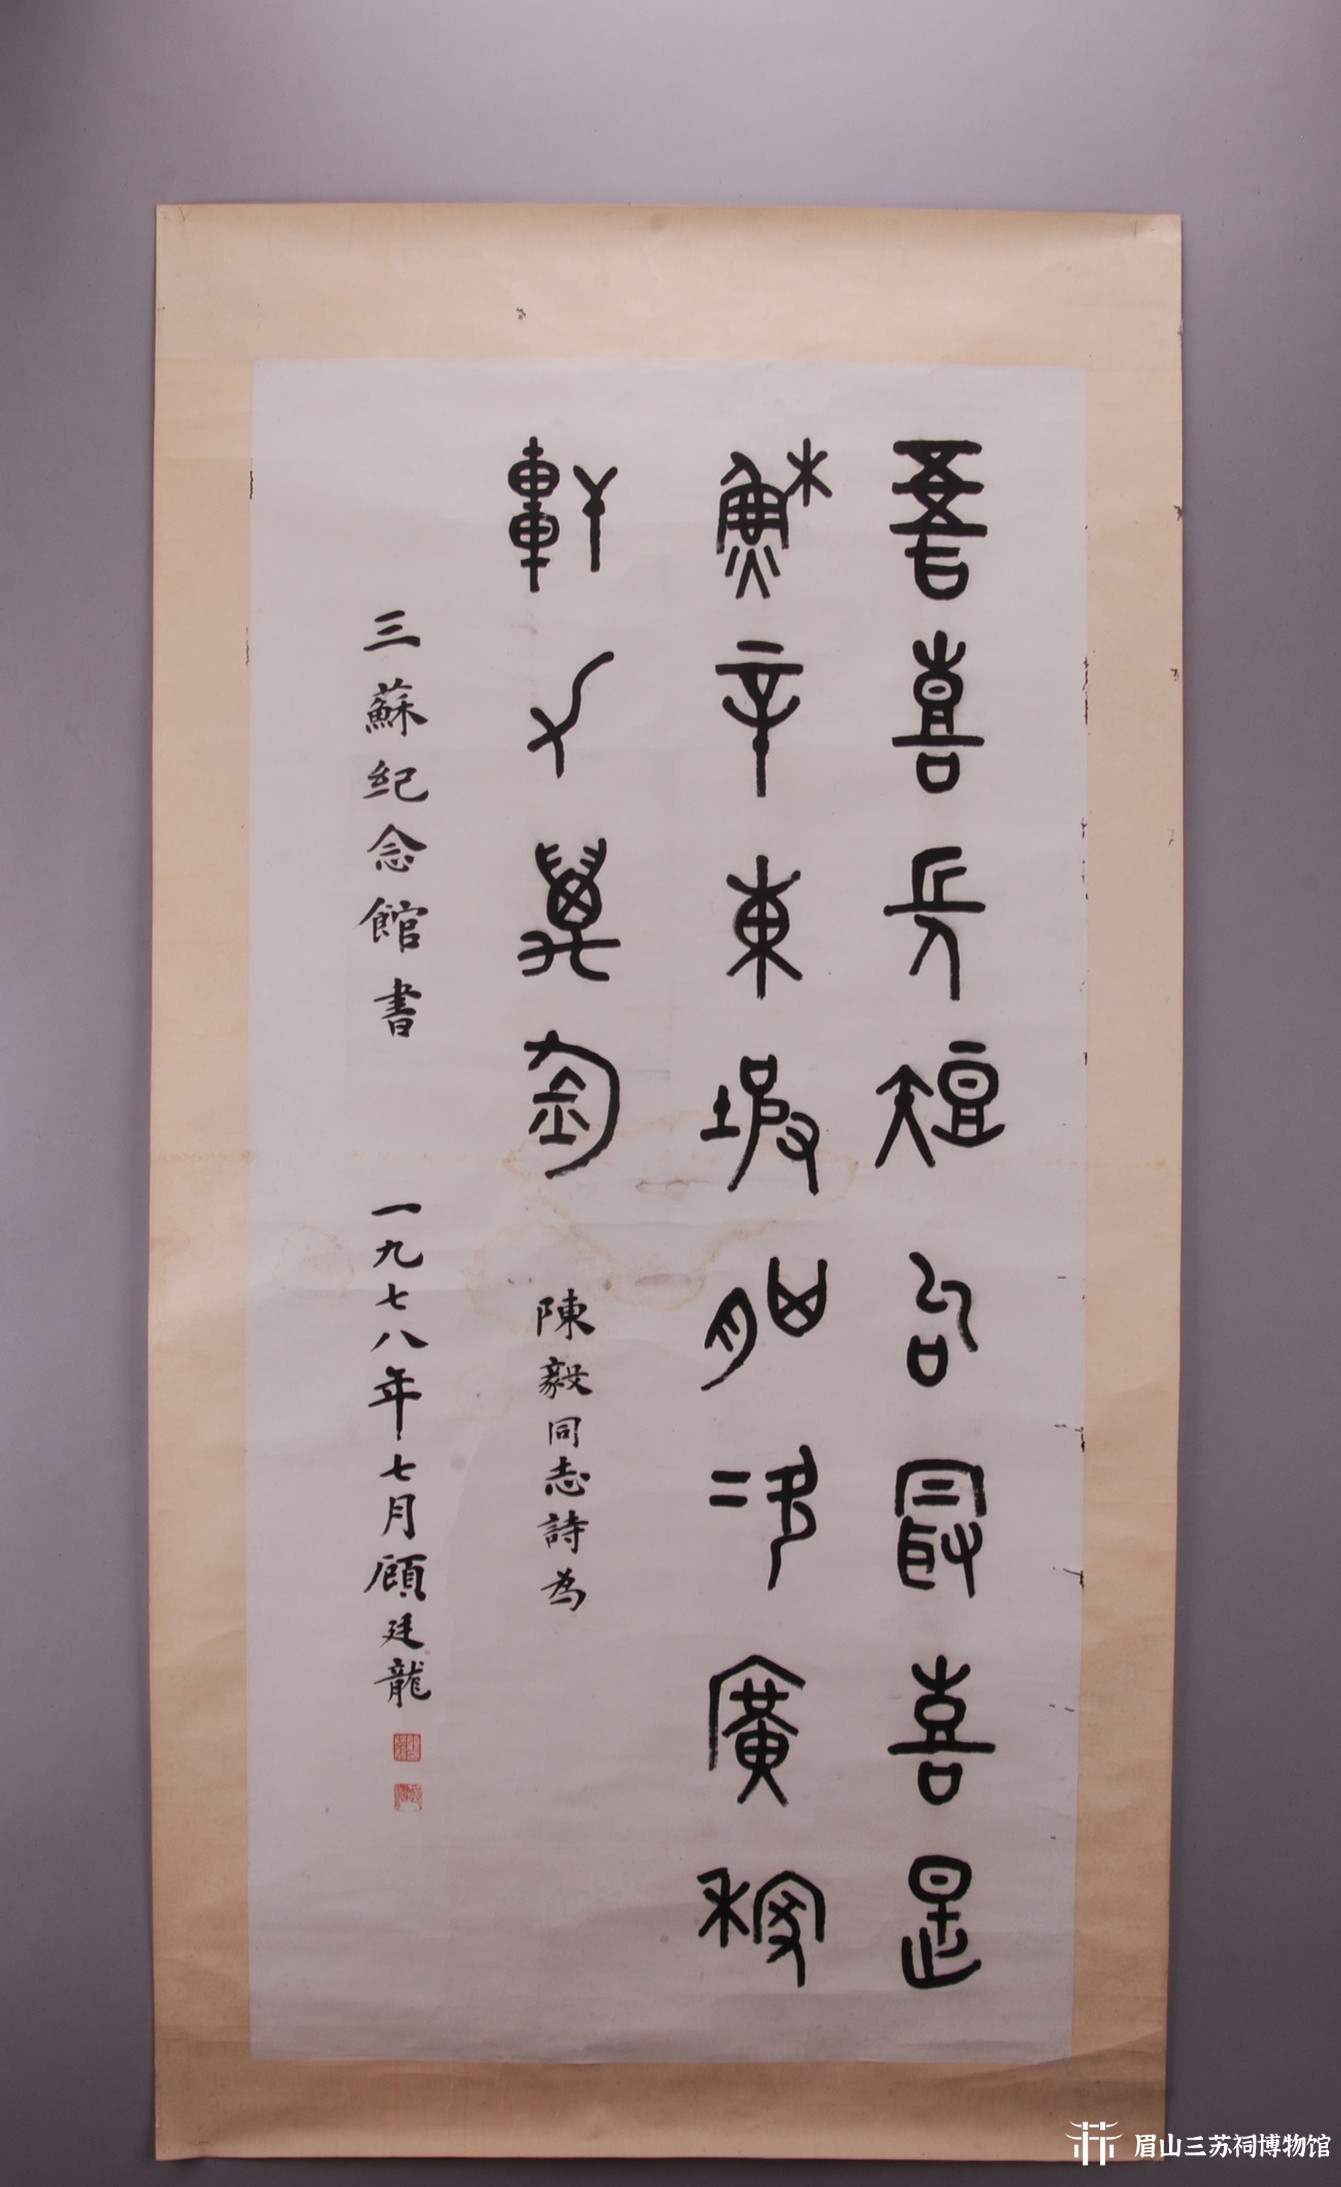 吾喜長短句最喜是
穌辛東坡胸次廣稼
軒力萬鈞 陳毅同志詩為
三蘇紀念館書 一九七八年七月顧廷龍
眉山三苏祠博物馆